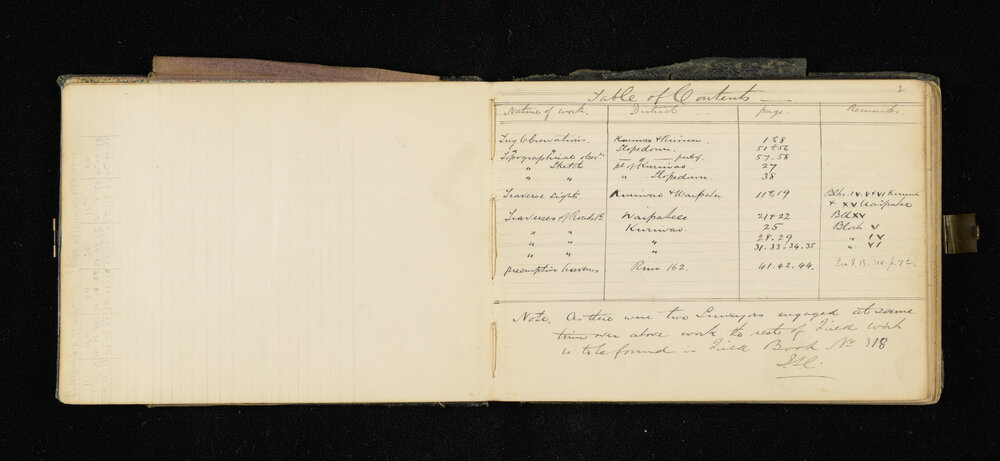 2
Table of Contents
Nature of work. District page. Remarks.
Trig Observations. Kuriwao & 1 to 8
" " Slopedown. 51 to 56
Topographical " part of 57.58
" Sketch pt of Kuriwao 27
" " " Slopedown 38
Traverse sights. Kuriwao & Waipahee 11 to 19 Blks. IV. V & VI Kuriwao
& XV Waipahee
Traverses of Roads Waipahee 21 & 22 Blk XV
" " Kuriwao. 25 Block V
" " " 28.29 " IV
" " " 31.32.34.35 " VI
Preemptive traverses Run 162. 41.42.44.
Note. As there were two Surveyors engaged at same
time over above work the rest of Field work
is to be found in Field Book No 318